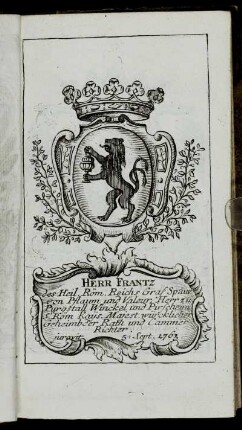 HERR FRANTZ
des Heil. Röm. Reichs Graf Spaur
von Pflaum und Valeur, Herr zu
Burgstall Winckel und
Röm. Kays. Maiest. würcklicher
Geheimbder Rath und Cammer
Richter.
iuravit 5. Sept. 1763